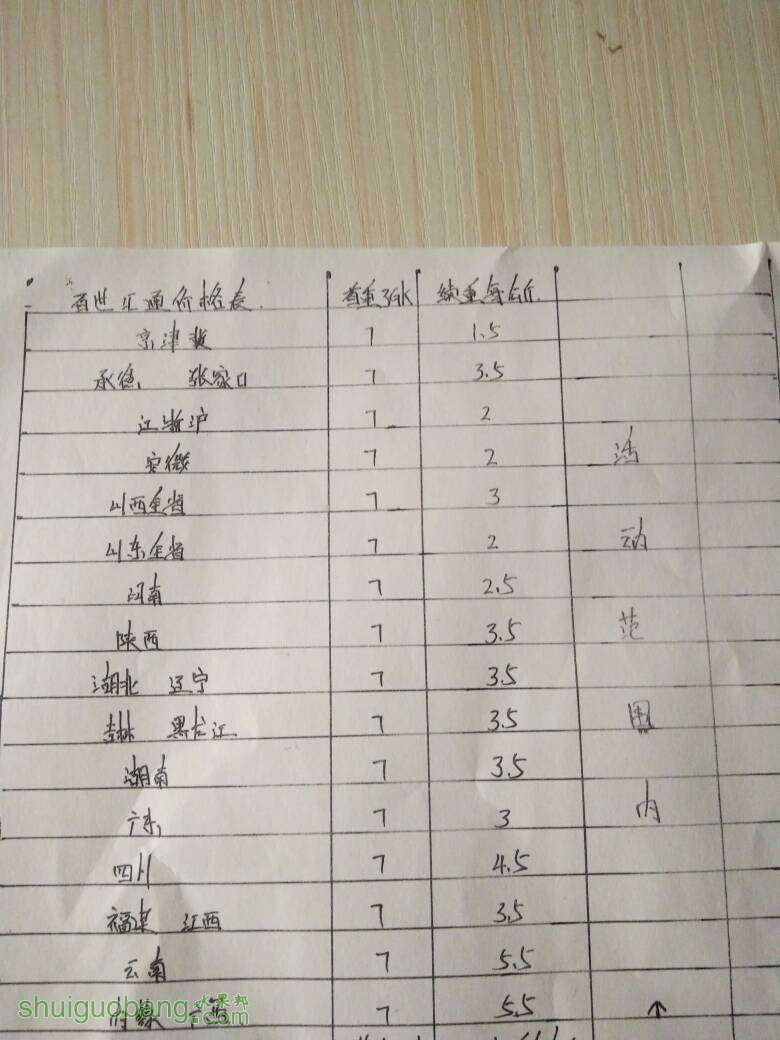 百世汇通价格表 首重3Gk 续重每公斤
京津冀 7 1.5
承德、 张家口 7 3.5
江浙沪 7 2
安徽 7 2 活
山西全省 7 3
山东全省 7 2 动
河南 7 2.5
陕西 7 3.5 范
湖北 辽宁 7 3.5
吉林 黑龙江 7 3.5 围
湖南 7 3.5
广东 7 3 内
四川 7 4.5
福建 江西 7 3.5
云南 7 5.5
7 5.5 ↑
shuiguobang.com 水果邦